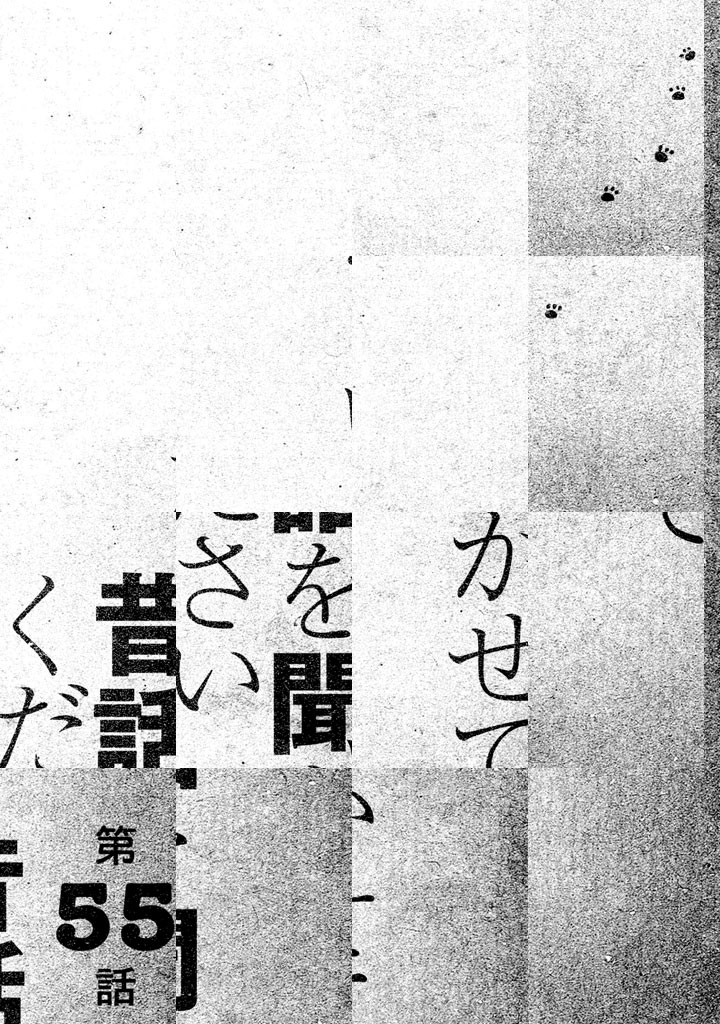 かせて
を聞
さい
昔話
くだ
第
55
話